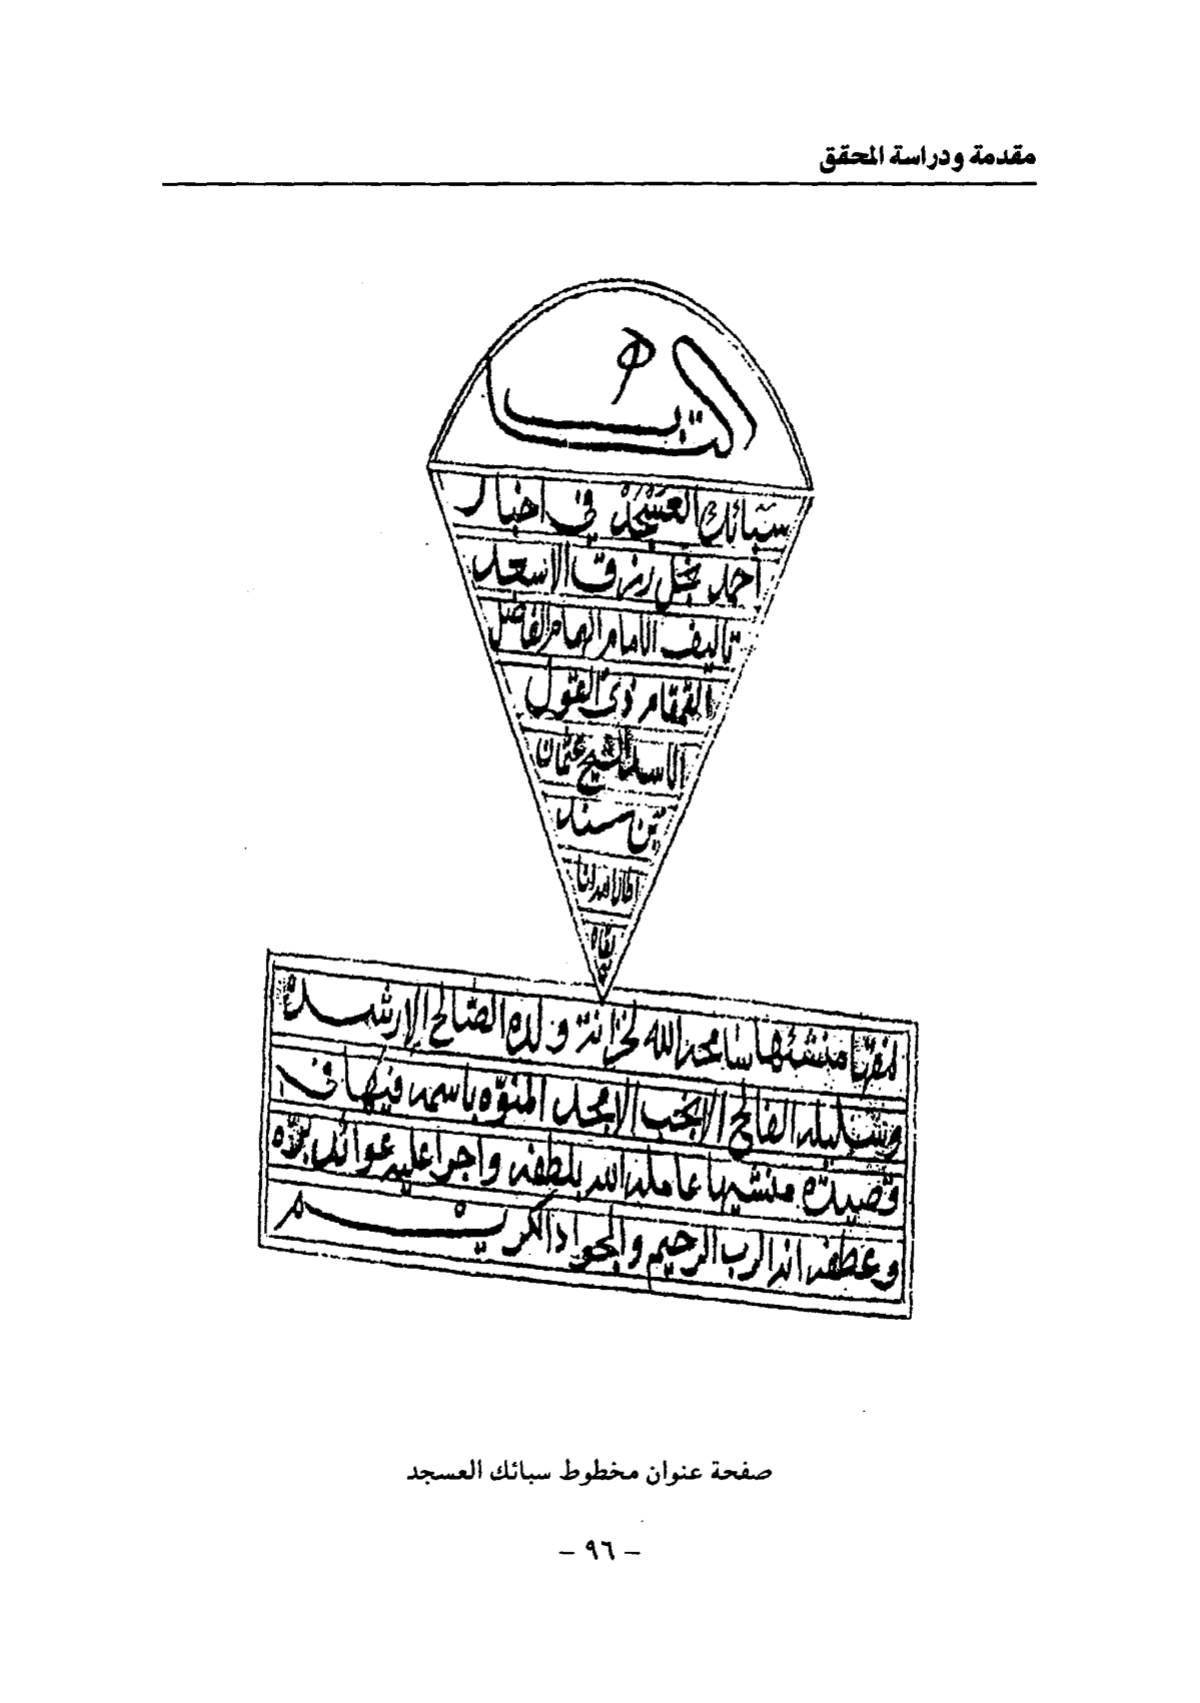 مقدمة ودراسة المحقق
الكتاب
سبائك العسجد في اخبار
احمد نجل رزق الاسعد
تاليف الامام الهمام الفاضل
القمقام ذي القول
الاسد الشيخ عثمان
بن سند
اطال الله لنا
بقاه
نمقها منشئها سامحه الله لخزانة ولده الصالح الارشد
وسليله الفالح الانجب الامجد المنوه باسمه فيها في
قصيدة منشيها عامله الله بلطفه واجرا عليه عوائد بره
وعطفه انه الرب الرحيم والجواد الكريم
صفحة عنوان مخطوط سبائك العسجد
– ٩٦ –